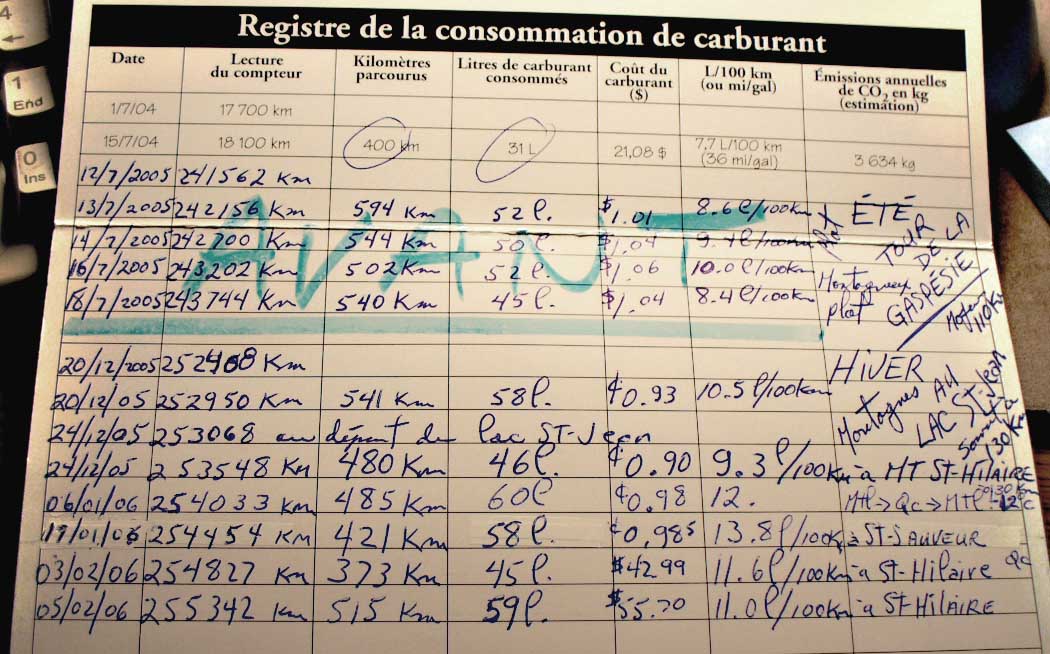 4
←
1
End
0
Ins
Registre de la consommation de carburant
Date Lecture du compteur Kilomètres parcourus Litres de carburant consommés Coût du carburant ($) L/100 km (ou mi/gal) Émissions annuelles de CO2 en kg (estimation)
1/7/04 17 700 km
15/7/04 18 100 km 400 km 31 L 21,08 $ 7,7 L/100 km (36 mi/gal) 3 634 kg
12/7/2005 241562 Km
13/7/2005 242156 Km 594 Km 52 l. $1.01 8.6 l/100km Plat ÉTÉ
14/7/2005 242700 Km 544 Km 50 l. $1.04 9.1 l/100km TOUR DE LA GASPÉSIE
16/7/2005 243202 Km 502 Km 52 l. $1.06 10.0 l/100km Montagneux
18/7/2005 243744 Km 540 Km 45 l. $1.04 8.4 l/100km plat 110 Km
AVANT
20/12/2005 252408 Km HiVER
20/12/05 252950 Km 541 Km 58 l. ¢0.93 10.5 l/100km Montagnes AU LAC ST-Jean
24/12/05 253068 au départ du lac ST-Jean 130 Km
24/12/05 253548 Km 480 Km 46 l. ¢0.90 9.3 l/100Km à MT ST-HILAIRE
06/01/06 254033 Km 485 Km 60 l ¢0.98 12. Mtl → Qc → MTL
19/01/06 254454 KM 421 Km 58 l. ¢0,985 13.8 l/100Km à ST-SAUVEUR
03/02/06 254827 Km 373 Km 45 l. $42.99 11.6 l/100Km à St-Hilaire Qc
05/02/06 255342 Km 515 Km 59 l. $55.70 11.0 l/100Km à St HiLAIRE